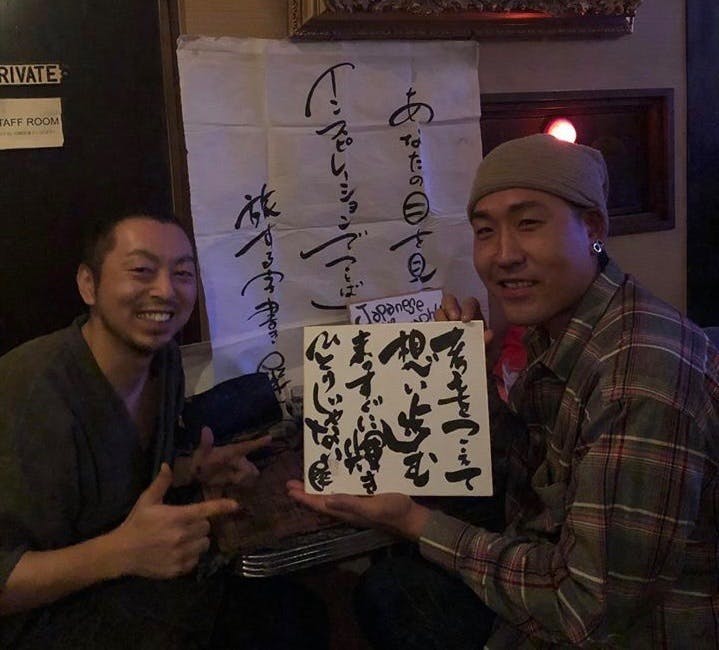 PRIVATE
STAFF ROOM
あなたの目を見
インスピレーションでことば
旅する字書き
Japanese
をこえて
想い歩む
まっすぐに輝き
ひとりじゃない